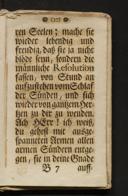 ren Seelen; mache sie
wieder lebendig und
freudig, daß sie ja nicht
blöde seyn, sondern die
männliche Resolution
fassen, von Stund an
aufzustehen vom Schlaf
der Sünden, und sich
wieder von gantzem Her-
tzen zu dir zu wenden.
Ach HErr! ich wolt,
du gehest mit ausge-
spanneten Armen allen
armen Sündern entge-
gen, sie in deine Gnade
B 7 auff-